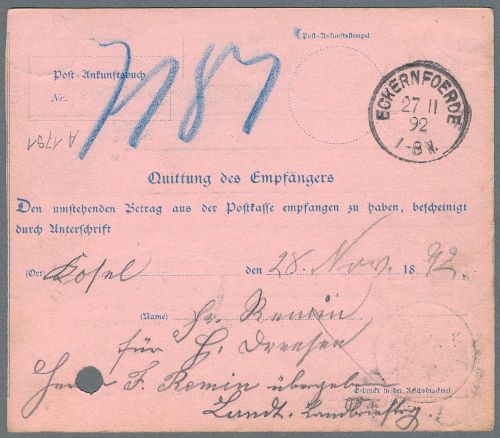 Post-Ankunftsstempel
Post-Ankunftsbuch
Nr.
7187
A 1791
ECKERNFOERDE
27 11
92
1-8 N.
Quittung des Empfängers
Den umstehenden Betrag aus der Postkasse empfangen zu haben, bescheinigt
durch Unterschrift
(Ort) Kosel den 28. Nov. 1892.
(Name) Fr. Remin
für H. Dreesen
Herrn F. Remin übergeben
Gedruckt in der Reichsdruckerei
Landbrieftrg.